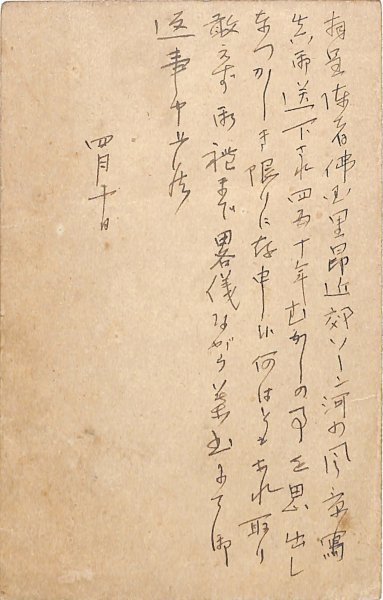 拝呈陳者佛国里昂近郊ソーン河の風景寫
真御送下され四五十年むかしの事を思出し
なつかしき限りに存申候何はともあれ取り
敢えず御禮まで畧儀ながら葉書にて御
返事申上候
四月十日